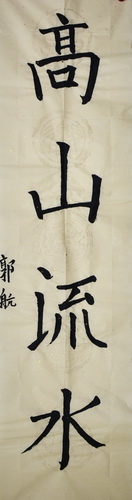 高山流水
郭航